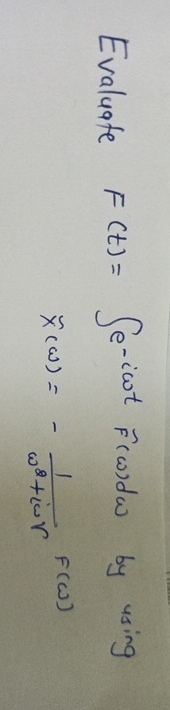 Evaluate F(t) = ∫e-iωt F̃(ω)dω by using
x̃(ω) = - 1/(ω²+iωr) F(ω)